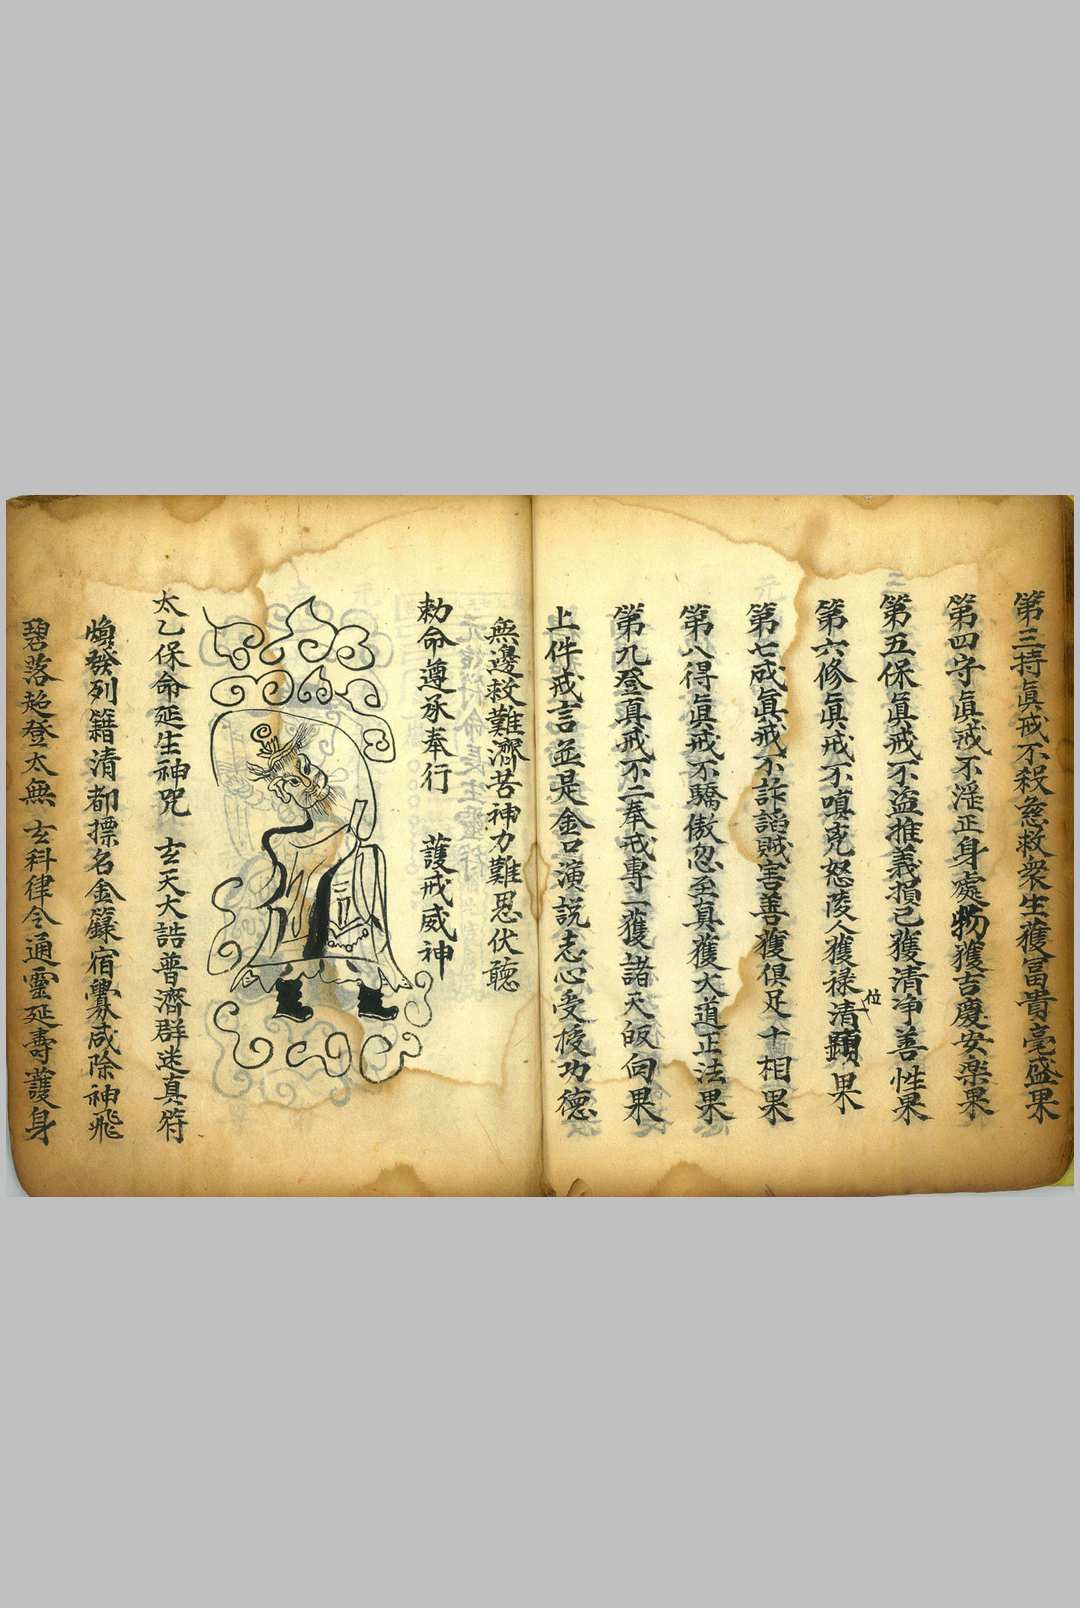 第三持眞戒不殺慈救衆生獲冨貴毫盛果
第四守眞戒不淫正身處物獲吉慶安楽果
第五保眞戒不盗推義損己獲清净善性果
第六修眞戒不嗔 怒陵人獲禄清顕果
位
第七成眞戒不詐謟賊害善獲俱足十相果
第八得眞戒不驕傲忽至真獲大道正法果
第九登真戒不二奉戒專一獲諸天皈向果
上件戒言並是金口演説志心受授功德
無邊救難濟苦神力難思伏聽
勅命遵承奉行 護戒威神
太乙保命延生神咒 玄天大誥普濟群迷真符
煥發列籍清都摽名金籙宿釁咸除神飛
碧落超登太無 玄科律令通靈延壽護身